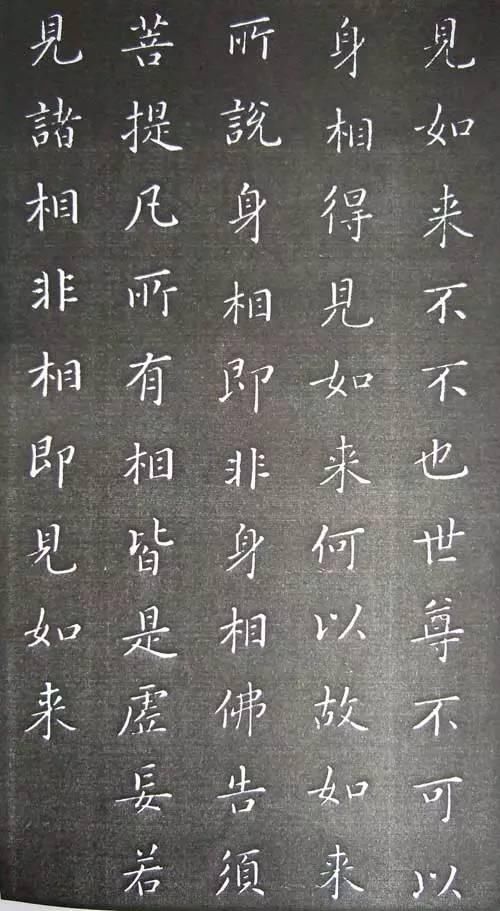 見如来不不也世尊不可以
身相得見如来何以故如来
所說身相即非身相佛告須
菩提凡所有相皆是虛妄若
見諸相非相即見如来